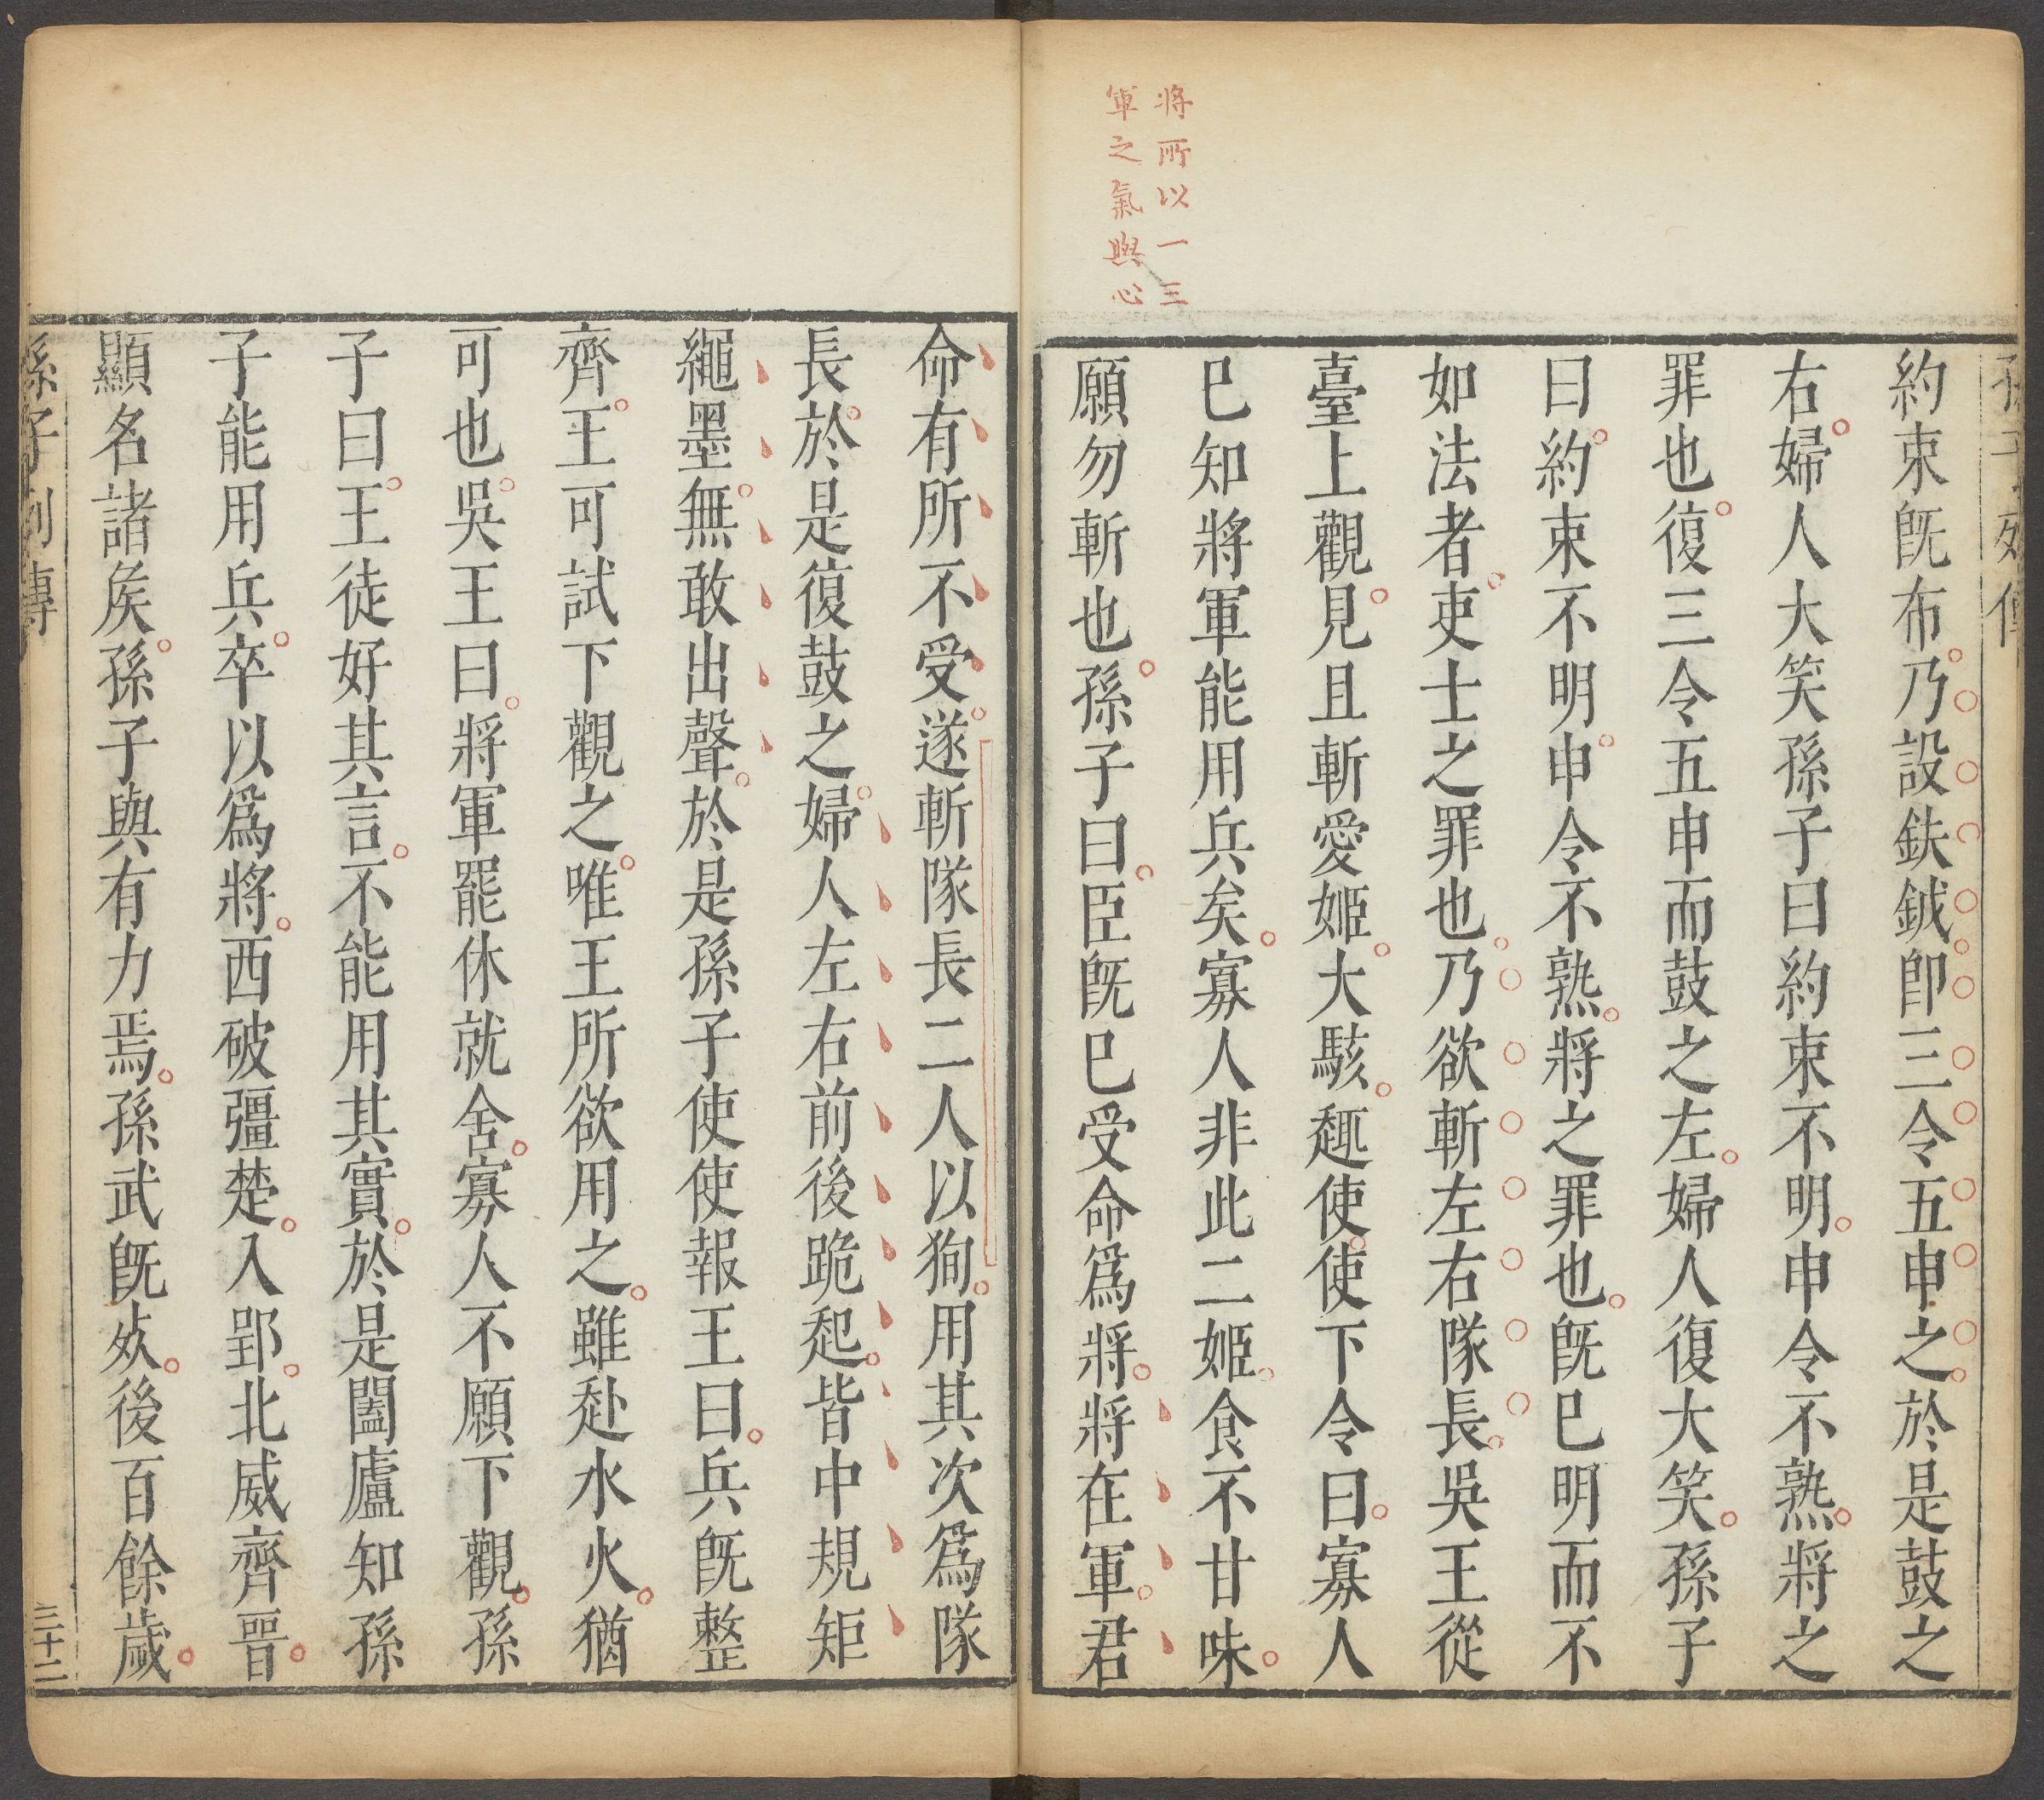 將所以一三
軍之氣與心
約束旣布乃設鈇鉞卽三令五申之於是鼓之
右婦人大笑孫子曰約束不明申令不熟將之
罪也復三令五申而鼓之左婦人復大笑孫子
曰約束不明申令不熟將之罪也旣已明而不
如法者吏士之罪也乃欲斬左右隊長吳王從
臺上觀見且斬愛姬大駭趣使使下令曰寡人
已知將軍能用兵矣寡人非此二姬食不甘味
願勿斬也孫子曰臣旣已受命爲將將在軍君
命有所不受遂斬隊長二人以狥用其次爲隊
長於是復鼓之婦人左右前後跪起皆中規矩
繩墨無敢出聲於是孫子使使報王曰兵旣整
齊王可試下觀之唯王所欲用之雖赴水火猶
可也吳王曰將軍罷休就舍寡人不願下觀孫
子曰王徒好其言不能用其實於是闔廬知孫
子能用兵卒以爲將西破彊楚入郢北威齊晉
顯名諸矦孫子與有力焉孫武旣死後百餘歲
孫子列傳
三十二